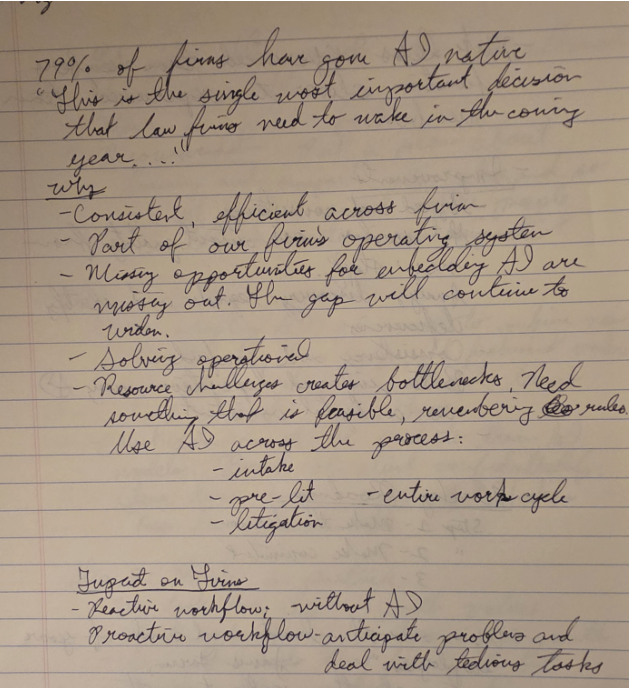 79% of firms have gone AI native
"This is the single most important decision
that law firms need to make in the coming
year...."
Why
- Consistent, efficient across firm
- Part of our firm's operating system
- Missing opportunities for embedding AI are
missing out. The gap will continue to
widen.
- Solving operational
- Resource challenges creates bottlenecks. Need
something that is feasible, remembering rules.
Use AI across the process:
- intake
- pre-lit - entire work cycle
- litigation
Impact on Firms
- Reactive workflow: without AI
Proactive workflow - anticipate problems and
deal with tedious tasks